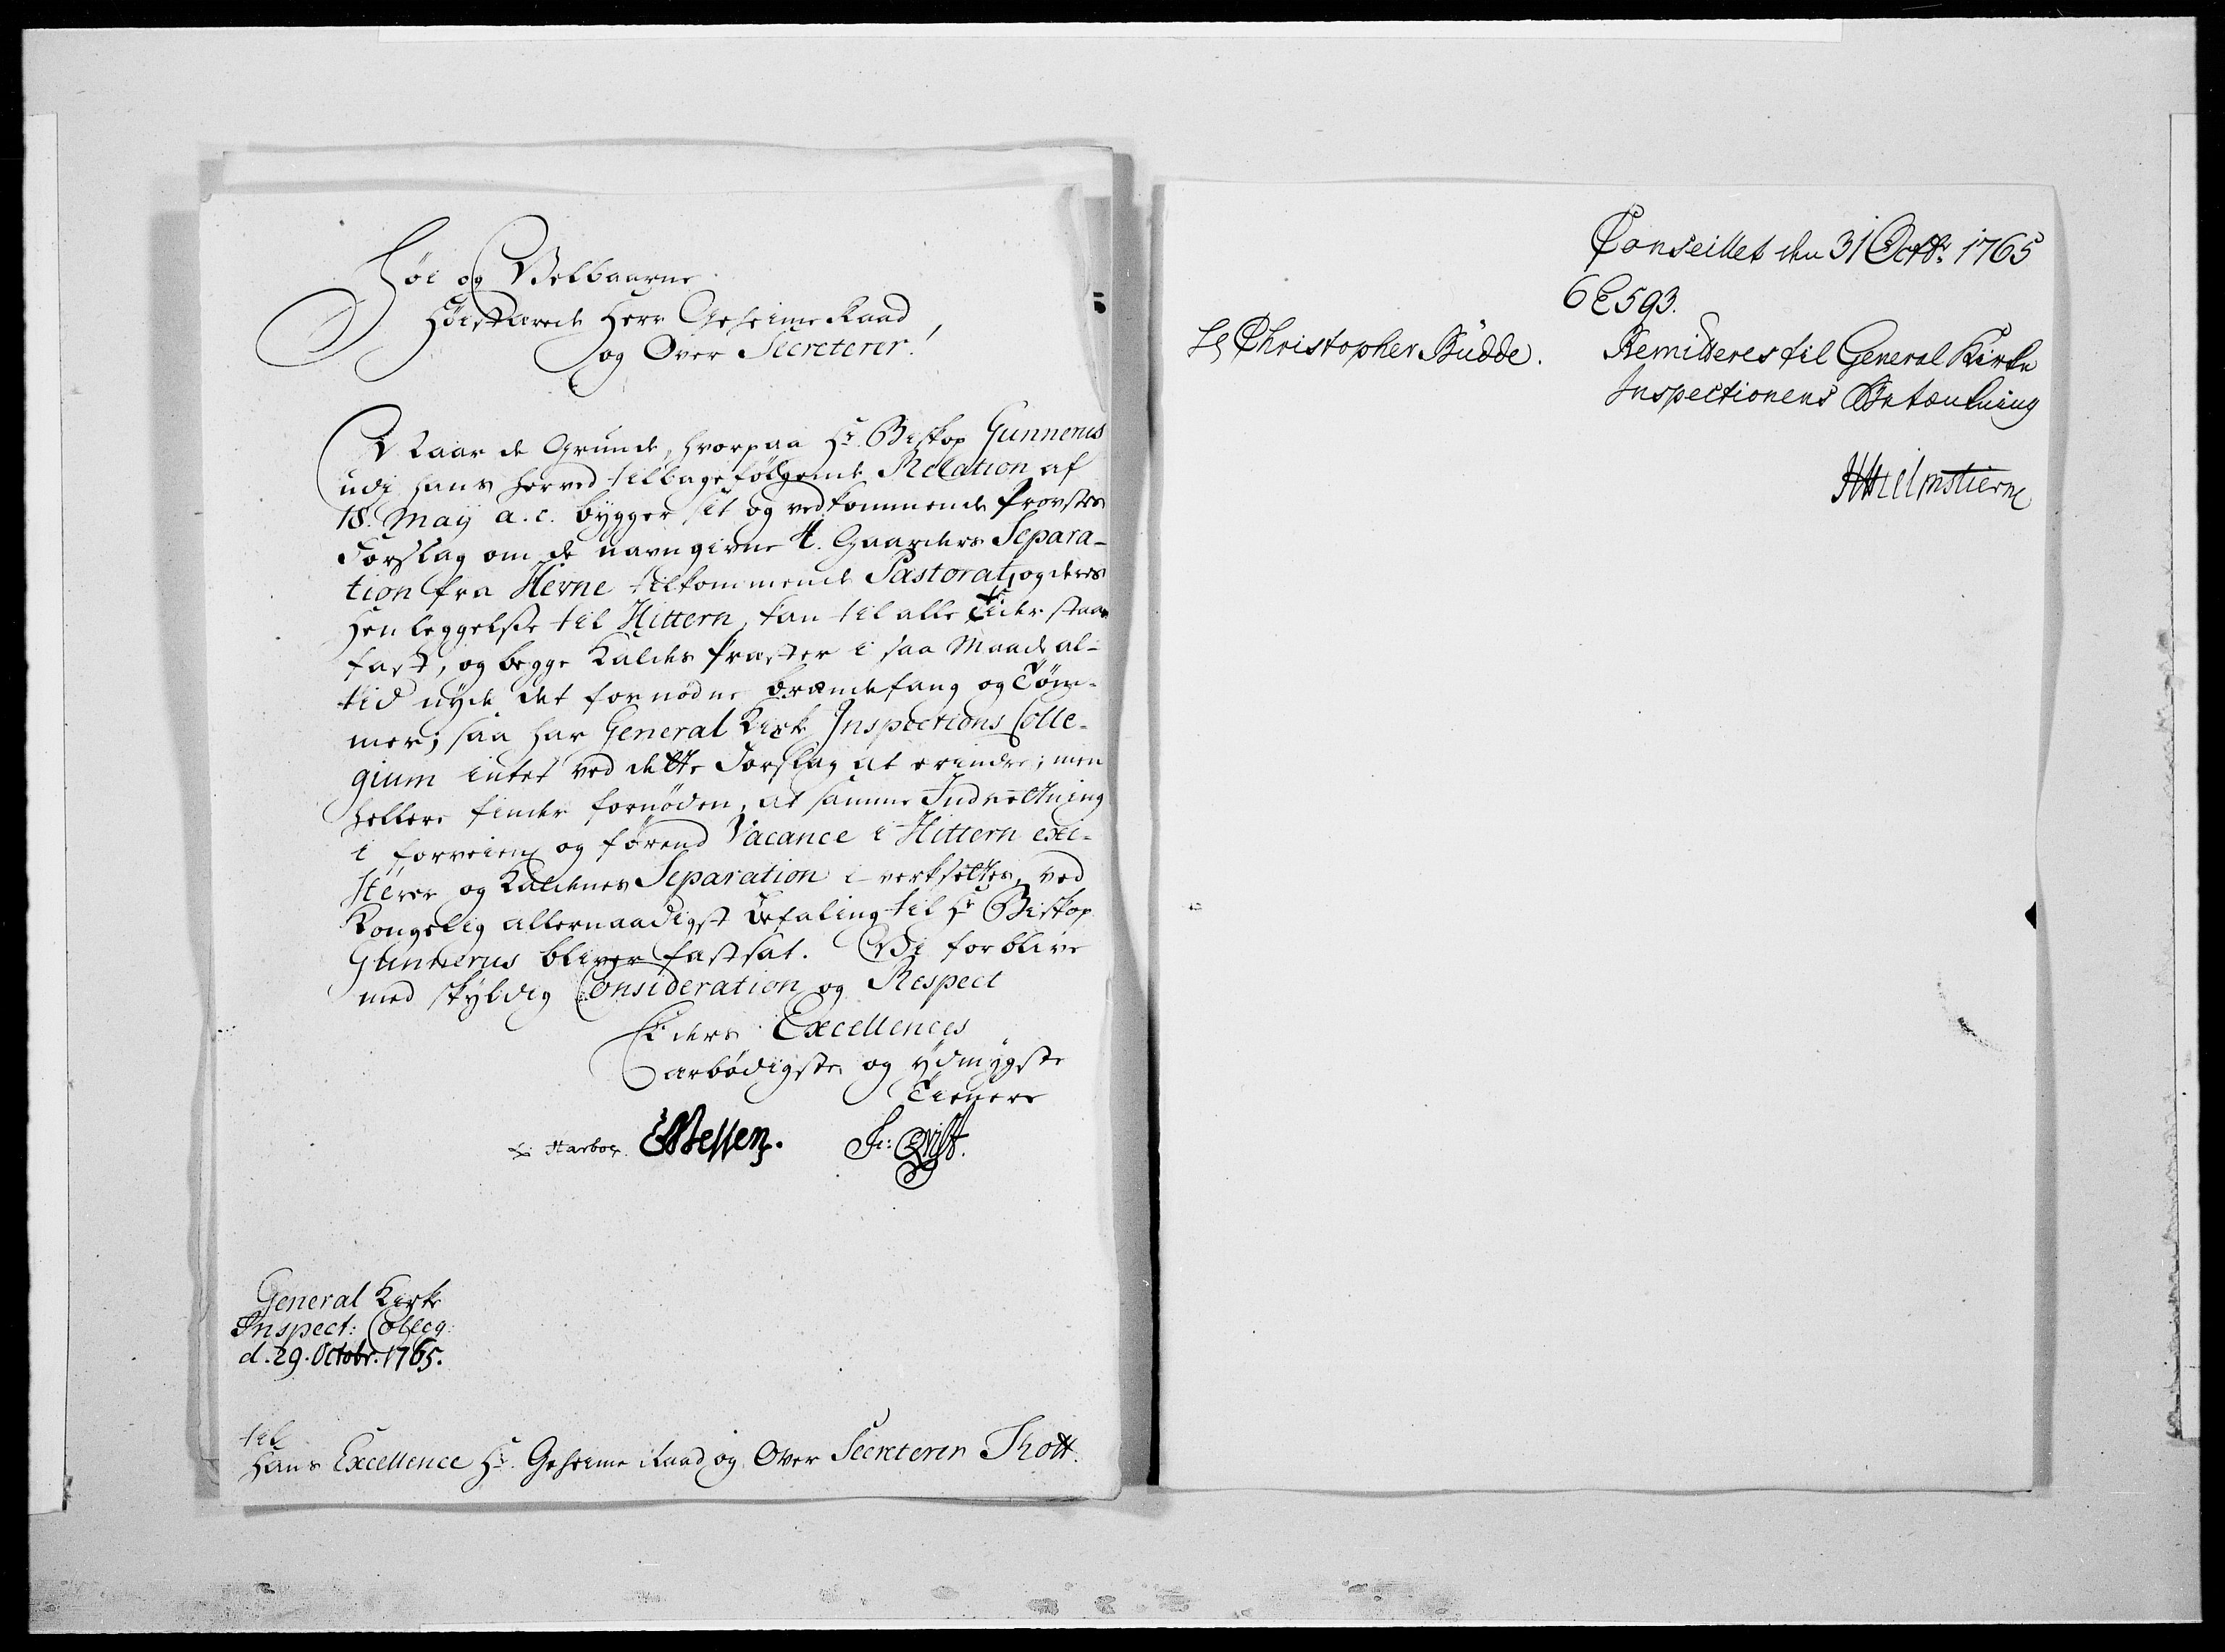 Høi og Velbaarne
Høistærede Herr Geheime Raad
og Over Secreterer!
Naar de Grunde, hvorpaa Hr. Biskop Gunnerus
udj hans herved tilbagefølgende Relation af
18. Maÿ a. c. bygger sit og vedkommende Provstes
Forslag om de navngivne 4. Gaarders Separa-
tion fra Hevne tilkommende Pastorat, og deres
Henleggelse til Hittern, kan til alle Tider staae
fast, og begge Kaldes Præster i saa Maade al-
tid nyde det fornødne Brændefang og Tøm-
mer; saa har General Kirke Inspections Colle-
gium intet ved dette Forslag at erindre; men
hellere finder fornøden, at samme Indretning
i forveien og førend Vacance i Hittern exi-
sterer og Kaldenes Separation i verksettes, ved
Kongelig allernaadigst Befaling til Hr Biskop
Gunnerus bliver fastsat. Vi forblive
med skyldig Consideration og Respect
Eders Excellences
ærbødigste og ydmygste
Tienere
L: Harboe. EWessen. Jc: Qvist.
General Kirke
Inspect: Colleg:
d. 29. Octobr. 1765.
til
Hans Excellence Hr. Geheime Raad og Over Secreterer Thott.
Conseillet den 31 Octbr. 1765
6 C 593.
Hr Christopher Büdde. Remitteres til General Kirke
Inspectionens Betænkning
HHielmstierne